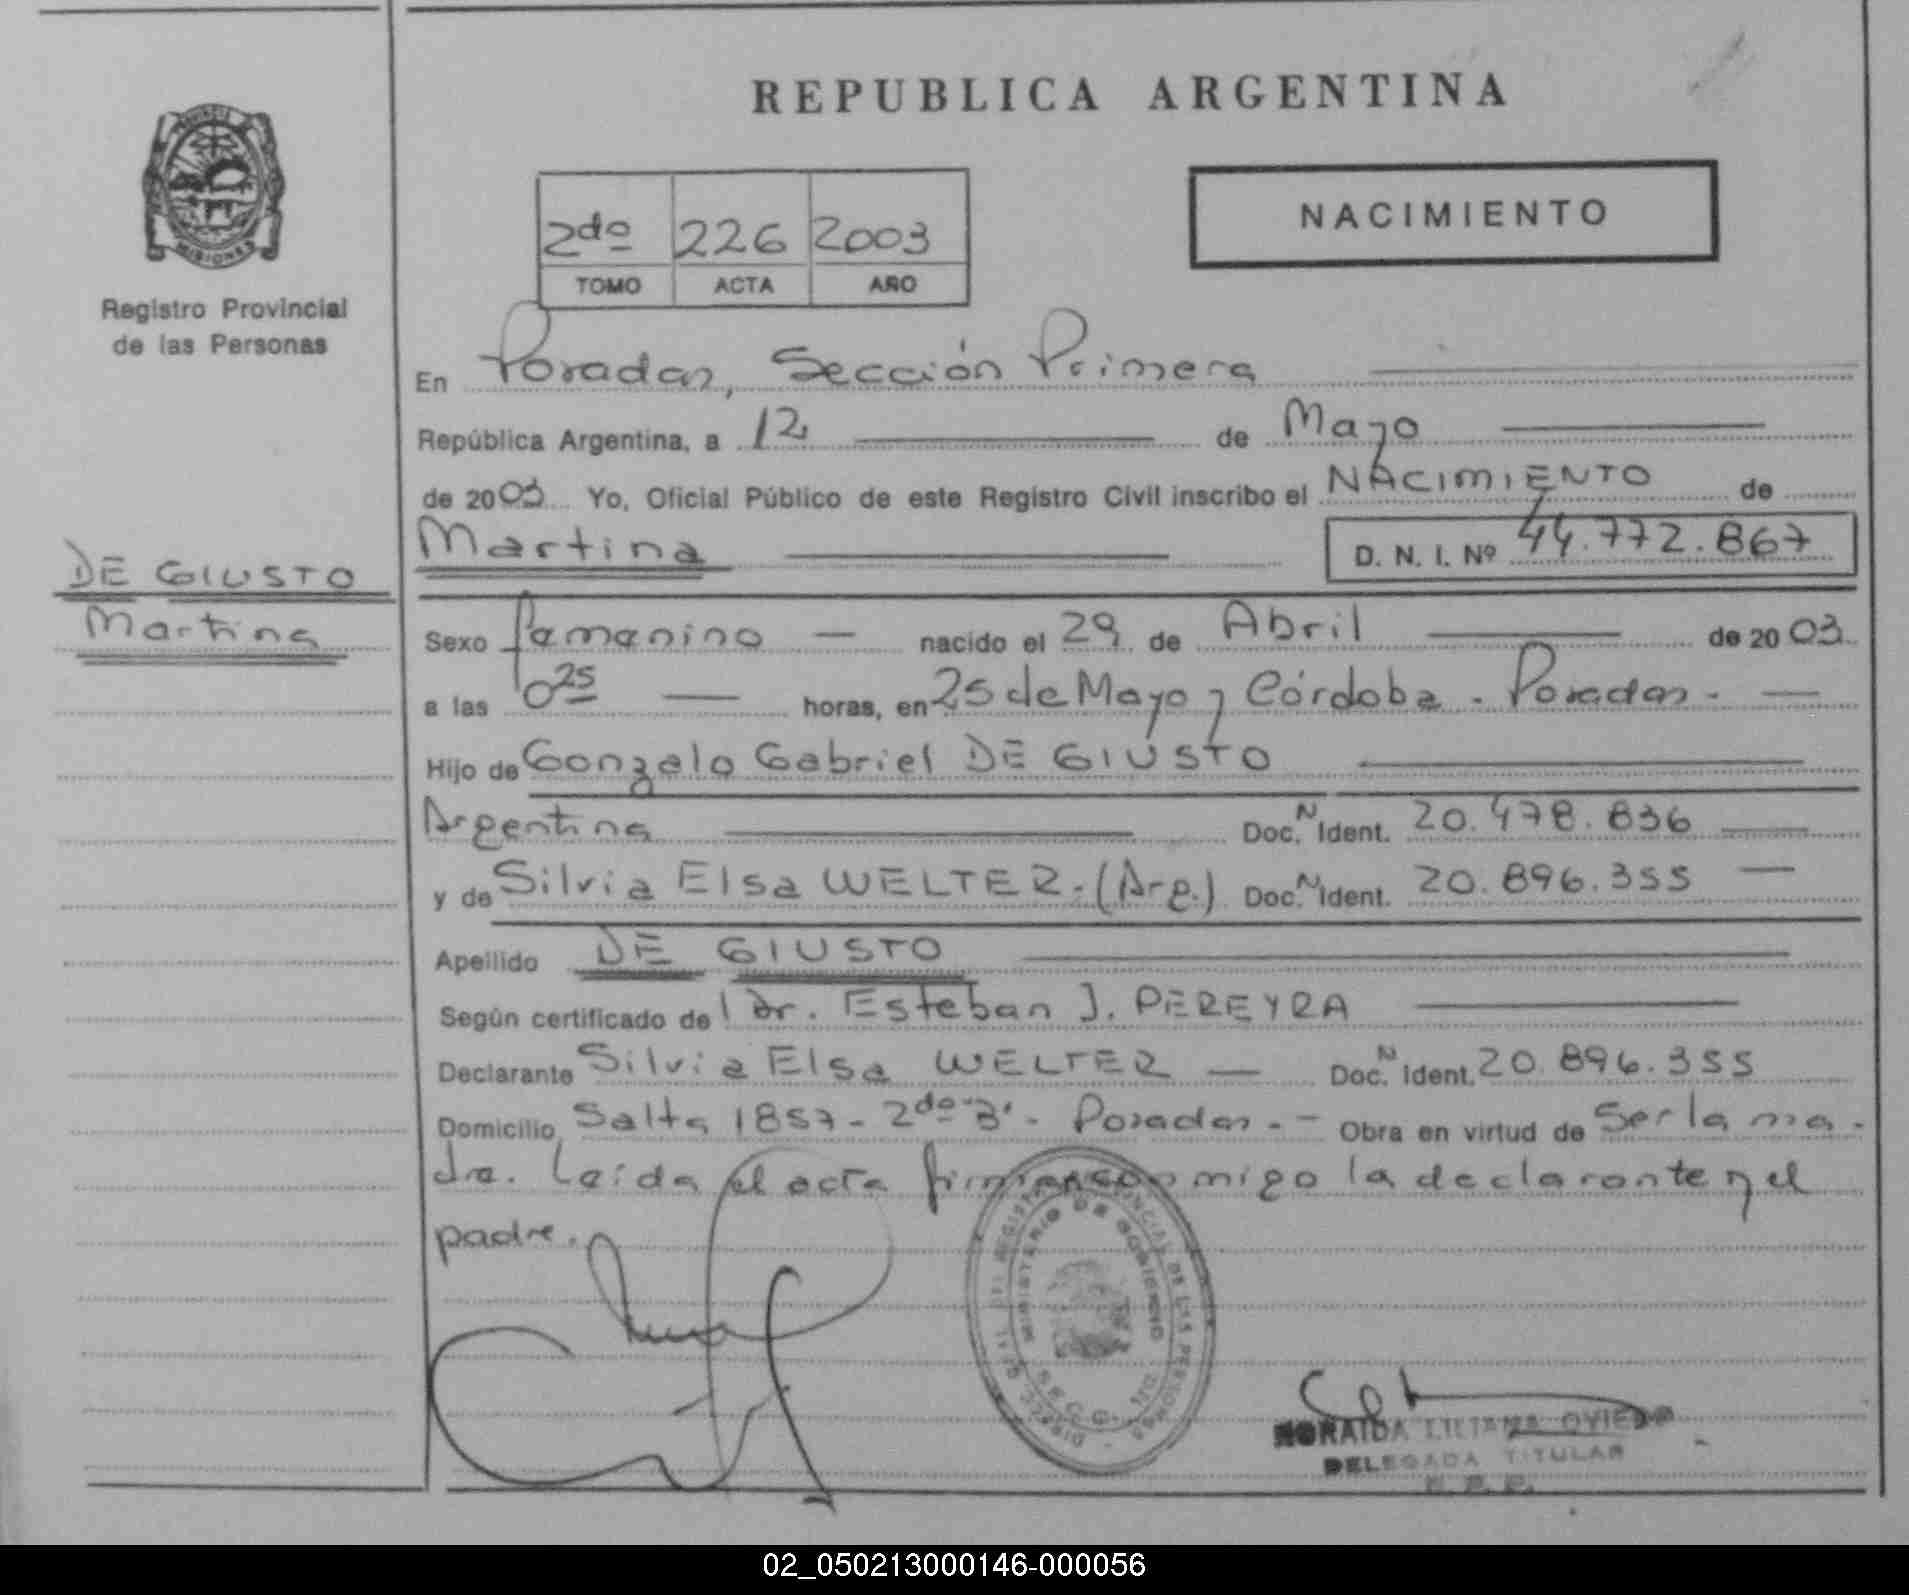 REPUBLICA ARGENTINA
MISIONES
Registro Provincial
de las Personas
2do 226 2003
TOMO ACTA AÑO
NACIMIENTO
En Posadas, Sección Primera
República Argentina, a 12 de Mayo
de 2003 Yo, Oficial Público de este Registro Civil inscribo el NACIMIENTO de
Martina D. N. I. Nº 44.772.867
DE GIUSTO
Martina
Sexo femenino nacido el 29 de Abril de 2003
a las 0 25 horas, en 25 de Mayo y Córdoba - Posadas -
Hijo de Gonzalo Gabriel DE GIUSTO
Argentina Doc. N Ident. 20.478.836
y de Silvia Elsa WELTER. (Arg.) Doc. N Ident. 20.896.355
Apellido DE GIUSTO
Según certificado del Dr. Esteban J. PEREYRA
Declarante Silvia Elsa WELTER Doc. N Ident. 20.896.355
Domicilio Salta 1857 - 2do "B" - Posadas. - Obra en virtud de Ser la ma-
dre. Leída el acta firman conmigo la declarante y el
padre.
MINISTERIO DE GOBIERNO
LILIANA OVIEDO
DELEGADA TITULAR
02_050213000146-000056